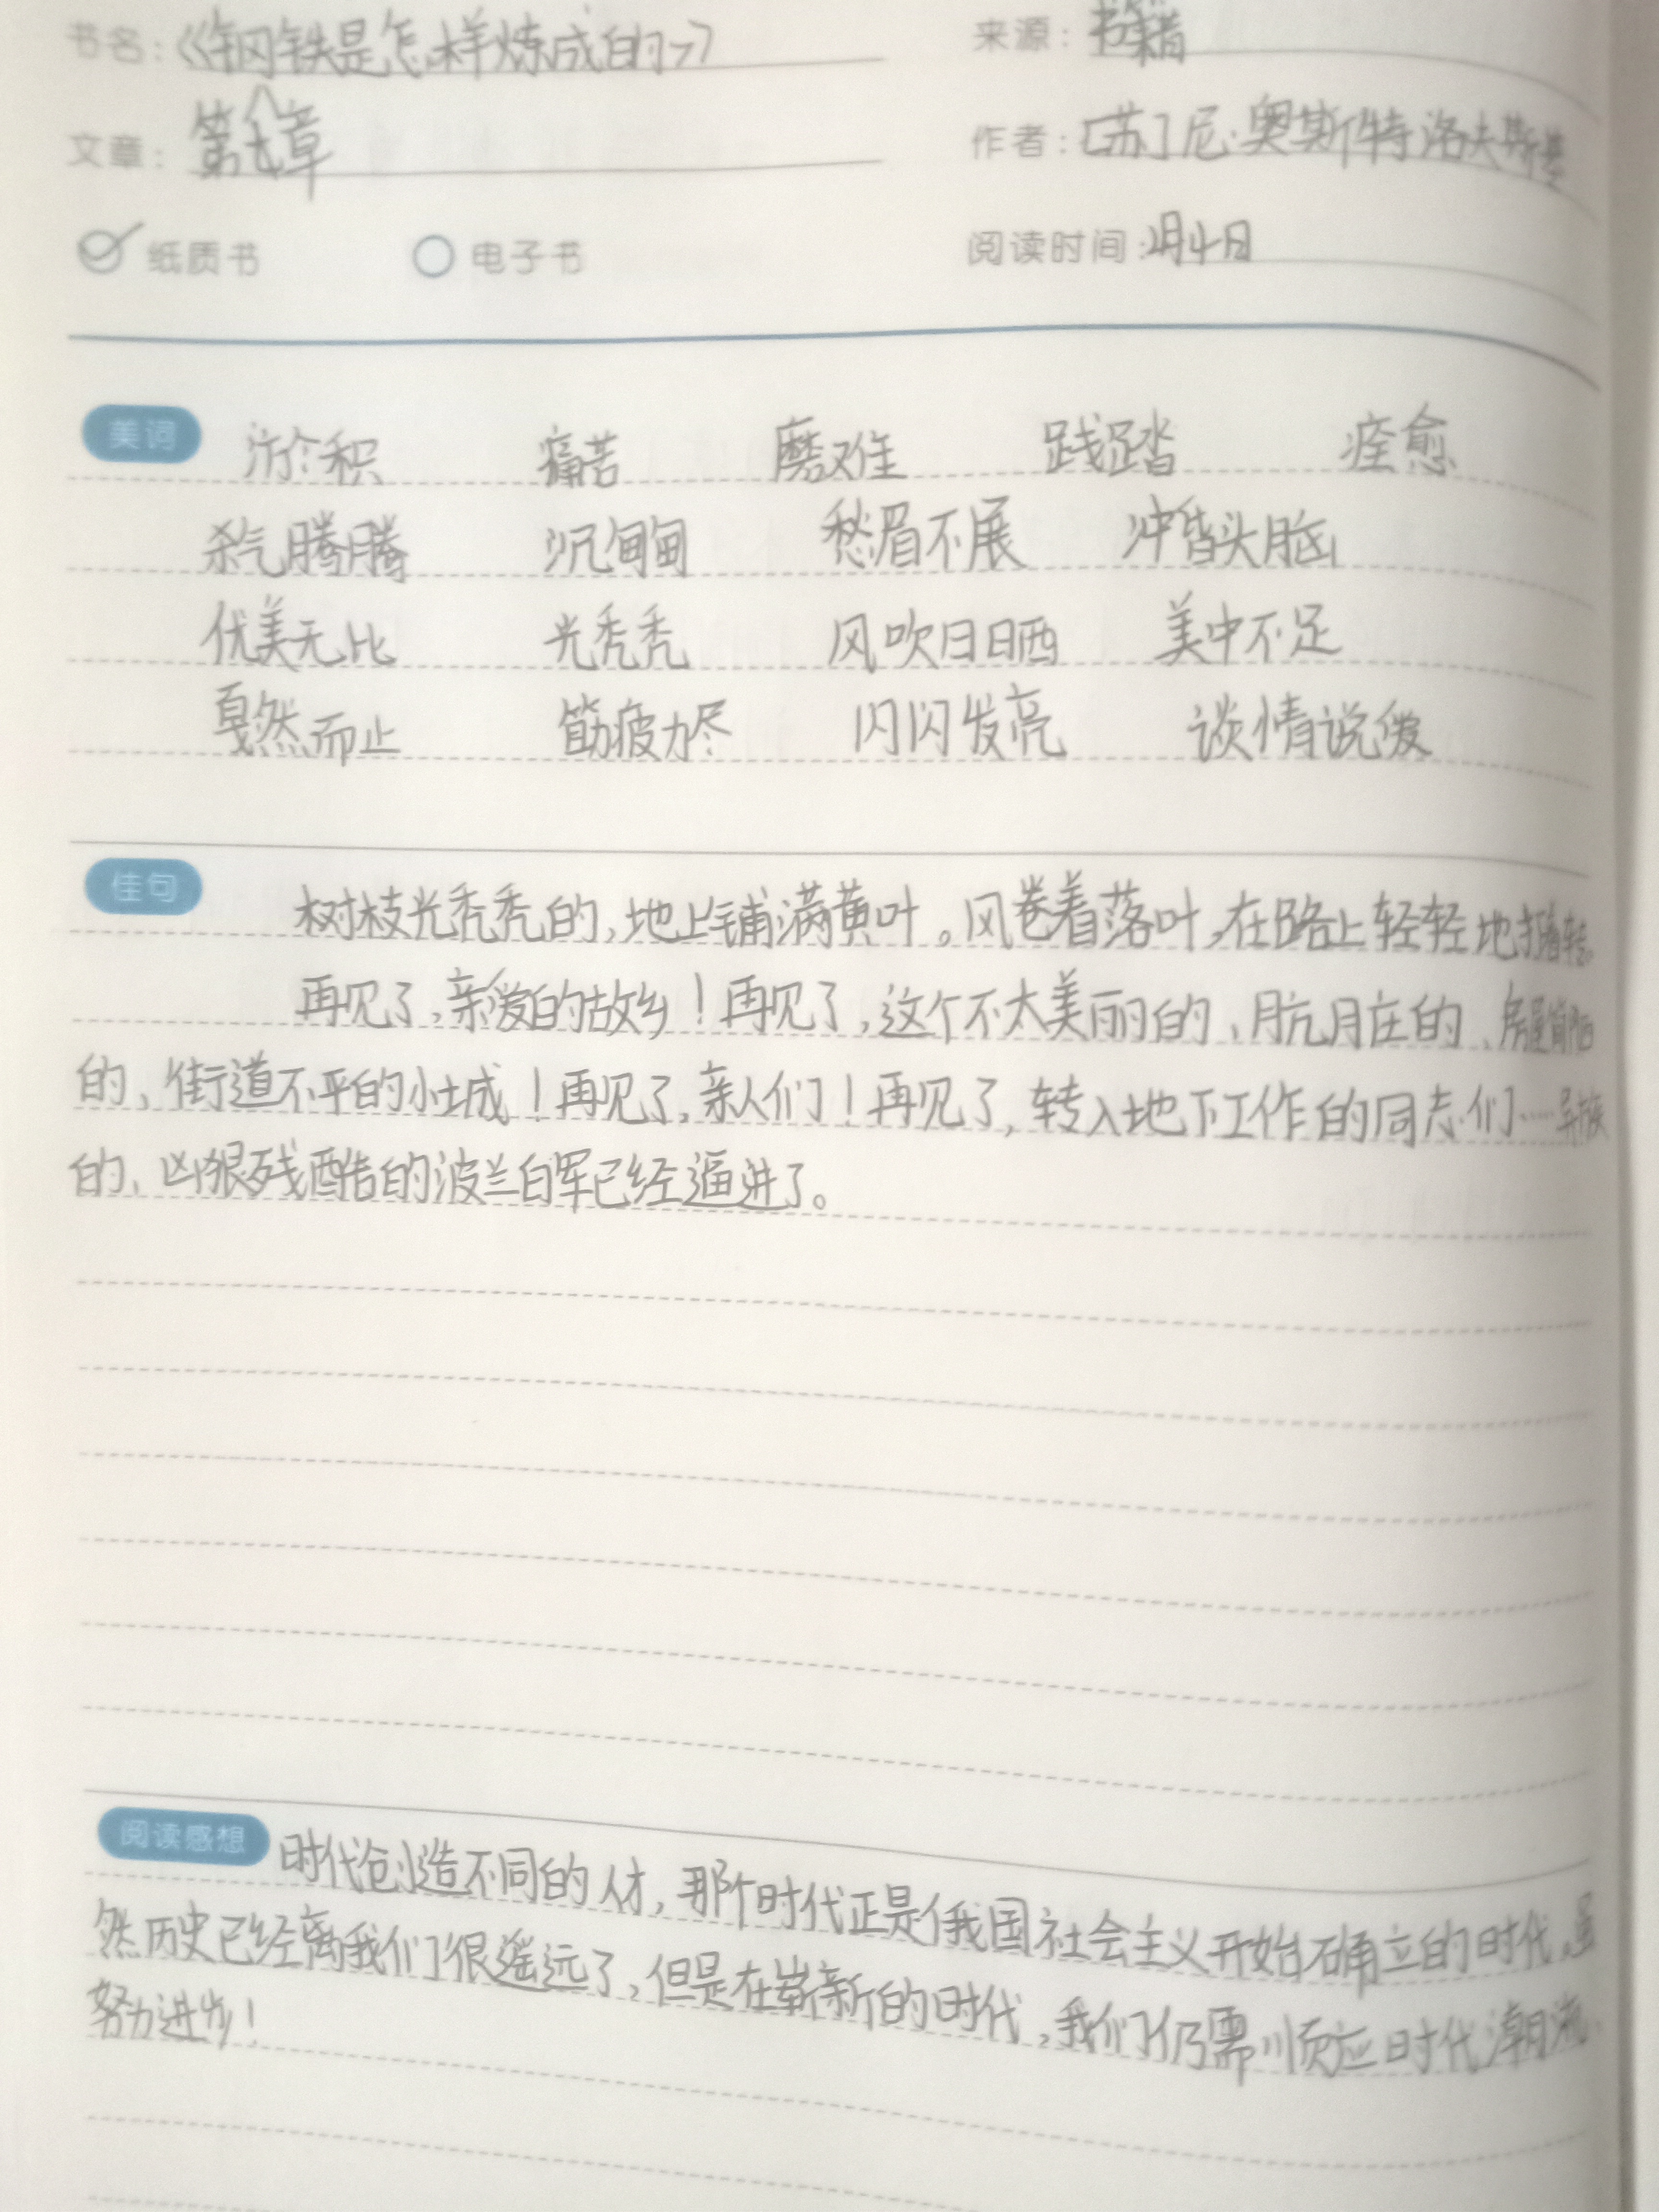 书名：《钢铁是怎样炼成的》 来源：书籍
文章：第八章 作者：[苏]尼·奥斯特洛夫斯基
纸质书 电子书 阅读时间：月4日
美词 淤积 痛苦 磨难 践踏 痊愈
杀气腾腾 沉甸甸 愁眉不展 冲昏头脑
优美无比 光秃秃 风吹日晒 美中不足
戛然而止 筋疲力尽 闪闪发亮 谈情说爱
佳句 树枝光秃秃的,地上铺满黄叶。风卷着落叶,在路上轻轻地打着转。
再见了,亲爱的故乡！再见了,这个不太美丽的、肮脏的、房屋简陋
的、街道不平的小城！再见了,亲人们！再见了,转入地下工作的同志们……异族
的、凶狠残酷的波兰白军已经逼进了。
阅读感想 时代创造不同的人才,那个时代正是俄国社会主义开始确立的时代,虽
然历史已经离我们很遥远了,但是在崭新的时代,我们仍需顺应时代潮流
努力进步！